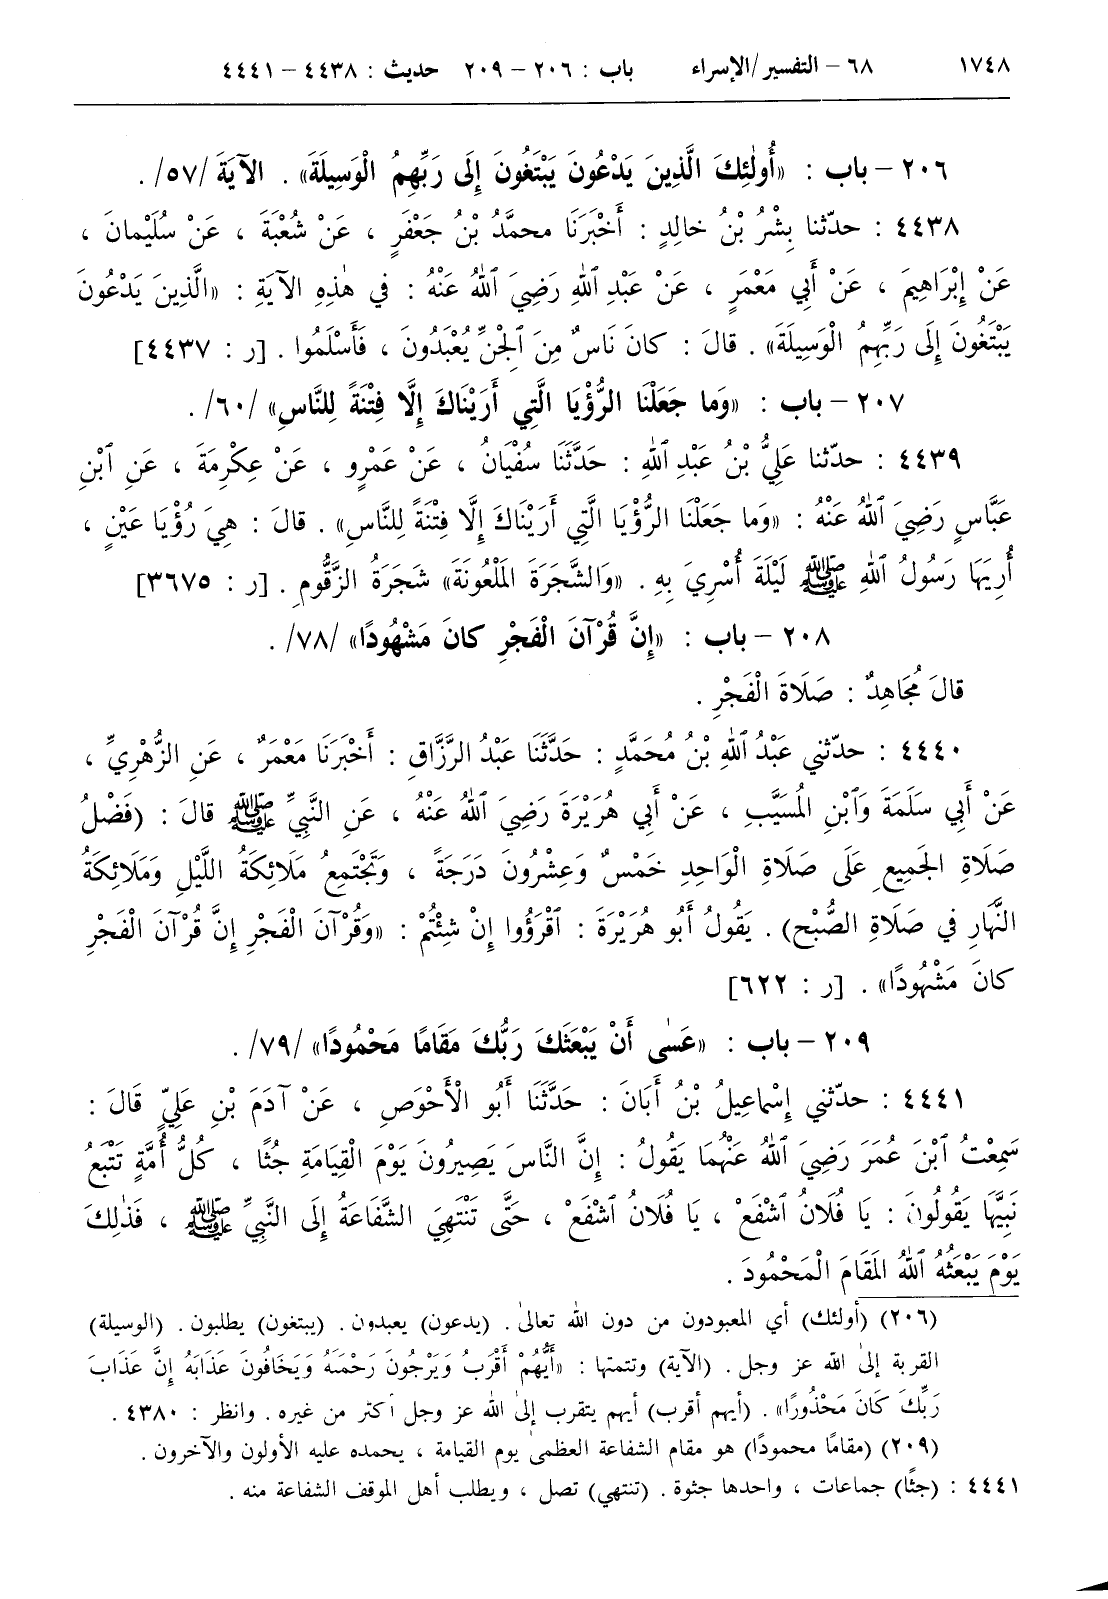 ١٧٤٨ ٦٨ – التفسير/الإسراء باب : ٢٠٦ – ٢٠٩ حديث : ٤٤٣٨ – ٤٤٤١
٢٠٦ – باب : «أُولٰئِكَ الَّذِينَ يَدْعُونَ يَبْتَغُونَ إِلَى رَبِّهِمُ الْوَسِيلَةَ» . الآيَةَ /٥٧/ .
٤٤٣٨ : حدّثنا بِشْرُ بْنُ خالِدٍ : أَخْبَرَنَا محمَّدُ بْنُ جَعْفَرٍ ، عَنْ شُعْبَةَ ، عَنْ سُلَيْمانَ ،
عَنْ إِبْرَاهِيمَ ، عَنْ أَبِي مَعْمَرٍ ، عَنْ عَبْدِ ٱللهِ رَضِيَ ٱللهُ عَنْهُ : في هٰذِهِ الآيَةِ : «الَّذِينَ يَدْعُونَ
يَبْتَغُونَ إِلَى رَبِّهِمُ الْوَسِيلَةَ» . قالَ : كانَ نَاسٌ مِنَ ٱلْجِنِّ يُعْبَدُونَ ، فَأَسْلَمُوا . [ر : ٤٤٣٧]
٢٠٧ – باب : «وَما جَعَلْنَا الرُّؤْيَا الَّتِي أَرَيْنَاكَ إِلَّا فِتْنَةً لِلنَّاسِ» /٦٠/ .
٤٤٣٩ : حدّثنا عَلِيُّ بْنُ عَبْدِ ٱللهِ : حَدَّثَنَا سُفْيَانُ ، عَنْ عَمْرٍو ، عَنْ عِكْرِمَةَ ، عَنِ ٱبْنِ
عَبَّاسٍ رَضِيَ ٱللهُ عَنْهُ : «وَما جَعَلْنَا الرُّؤْيَا الَّتِي أَرَيْنَاكَ إِلَّا فِتْنَةً لِلنَّاسِ» . قالَ : هِيَ رُؤْيَا عَيْنٍ ،
أُرِيَهَا رَسُولُ ٱللهِ ﷺ لَيْلَةَ أُسْرِيَ بِهِ . «وَالشَّجَرَةَ المَلْعُونَةَ» شَجَرَةُ الزَّقُّومِ . [ر : ٣٦٧٥]
٢٠٨ – باب : «إِنَّ قُرْآنَ الْفَجْرِ كانَ مَشْهُودًا» /٧٨/ .
قالَ مُجَاهِدٌ : صَلَاةَ الْفَجْرِ .
٤٤٤٠ : حدّثني عَبْدُ ٱللهِ بْنُ مُحَمَّدٍ : حَدَّثَنَا عَبْدُ الرَّزَّاقِ : أَخْبَرَنَا مَعْمَرٌ ، عَنِ الزُّهْرِيِّ ،
عَنْ أَبِي سَلَمَةَ وَٱبْنِ المُسَيَّبِ ، عَنْ أَبِي هُرَيْرَةَ رَضِيَ ٱللهُ عَنْهُ ، عَنِ النَّبِيِّ ﷺ قالَ : (فَضْلُ
صَلَاةِ الجَمِيعِ عَلَى صَلَاةِ الْوَاحِدِ خَمْسٌ وَعِشْرُونَ دَرَجَةً ، وَتَجْتَمِعُ مَلَائِكَةُ اللَّيْلِ وَمَلَائِكَةُ
النَّهَارِ في صَلَاةِ الصُّبْحِ) . يَقُولُ أَبُو هُرَيْرَةَ : ٱقْرَؤُوا إِنْ شِئْتُمْ : «وَقُرْآنَ الْفَجْرِ إِنَّ قُرْآنَ الْفَجْرِ
كانَ مَشْهُودًا» . [ر : ٦٢٢]
٢٠٩ – باب : «عَسٰى أَنْ يَبْعَثَكَ رَبُّكَ مَقَامًا مَحْمُودًا» /٧٩/ .
٤٤٤١ : حدّثني إِسْماعِيلُ بْنُ أَبَانَ : حَدَّثَنَا أَبُو الْأَحْوَصِ ، عَنْ آدَمَ بْنِ عَلِيٍّ قَالَ :
سَمِعْتُ ٱبْنَ عُمَرَ رَضِيَ ٱللهُ عَنْهُمَا يَقُولُ : إِنَّ النَّاسَ يَصِيرُونَ يَوْمَ الْقِيَامَةِ جُثًا ، كُلُّ أُمَّةٍ تَتْبَعُ
نَبِيَّهَا يَقُولُونَ : يَا فُلَانُ ٱشْفَعْ ، يَا فُلَانُ ٱشْفَعْ ، حَتَّى تَنْتَهِيَ الشَّفَاعَةُ إِلَى النَّبِيِّ ﷺ ، فَذٰلِكَ
يَوْمَ يَبْعَثُهُ ٱللهُ المَقَامَ الْمَحْمُودَ .
(٢٠٦) (أولئك) أي المعبودون من دون الله تعالى . (يدعون) يعبدون . (يبتغون) يطلبون . (الوسيلة)
القربة إلى الله عز وجل . (الآية) وتتمتها : «أَيُّهُمْ أَقْرَبُ وَيَرْجُونَ رَحْمَتَهُ وَيَخَافُونَ عَذَابَهُ إِنَّ عَذَابَ
رَبِّكَ كَانَ مَحْذُورًا» . (أيهم أقرب) أيهم يتقرب إلى الله عز وجل أكثر من غيره . وانظر : ٤٣٨٠ .
(٢٠٩) (مقامًا محمودًا) هو مقام الشفاعة العظمى يوم القيامة ، يحمده عليه الأولون والآخرون .
٤٤٤١ : (جثًا) جماعات ، واحدها جثوة . (تنتهي) تصل ، ويطلب أهل الموقف الشفاعة منه .